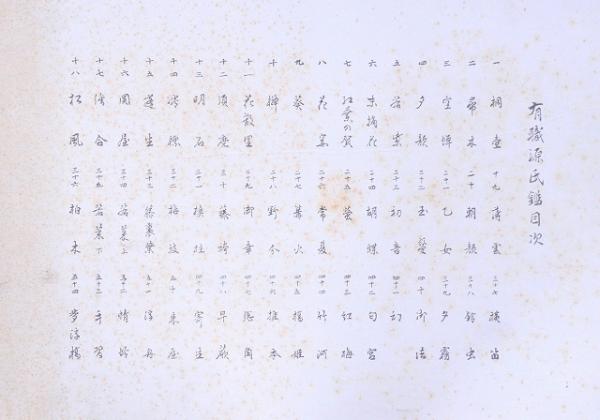 有職源氏鑑目次
一 桐壺
二 帚木
三 空蝉
四 夕顔
五 若紫
六 末摘花
七 紅葉の賀
八 花宴
九 葵
十 榊
十一 花散里
十二 須磨
十三 明石
十四 澪標
十五 蓬生
十六 関屋
十七 絵合
十八 松風
十九 薄雲
二十 朝顔
二十一 乙女
二十二 玉鬘
二十三 初音
二十四 胡蝶
二十五 螢
二十六 常夏
二十七 篝火
二十八 野分
二十九 御幸
三十 藤袴
三十一 槙柱
三十二 梅枝
三十三 藤裏葉
三十四 若菜上
三十五 若菜下
三十六 柏木
三十七 横笛
三十八 鈴虫
三十九 夕霧
四十 御法
四十一 幻
四十二 匂宮
四十三 紅梅
四十四 竹河
四十五 橋姫
四十六 椎本
四十七 総角
四十八 早蕨
四十九 寄生
五十 東屋
五十一 浮舟
五十二 蜻蛉
五十三 手習
五十四 夢浮橋